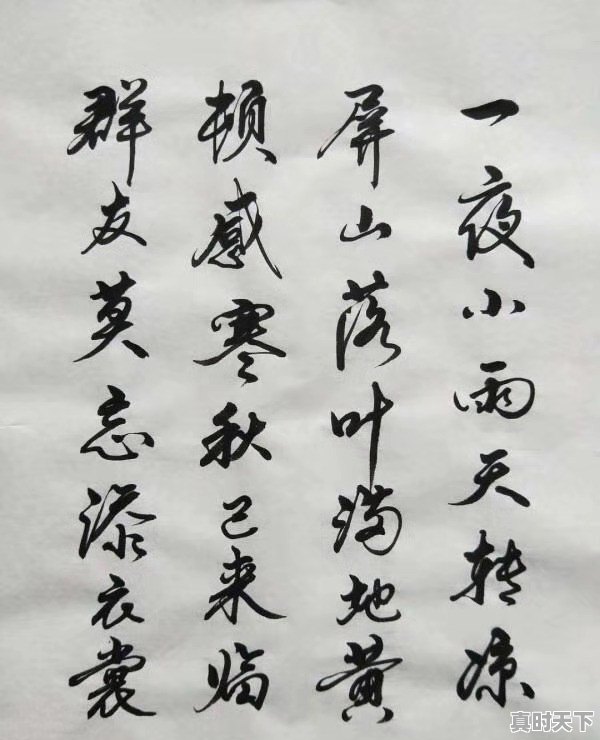 一夜小雨天转凉
屏山落叶满地黄
顿感寒秋已来临
群友莫忘添衣裳
真时天下